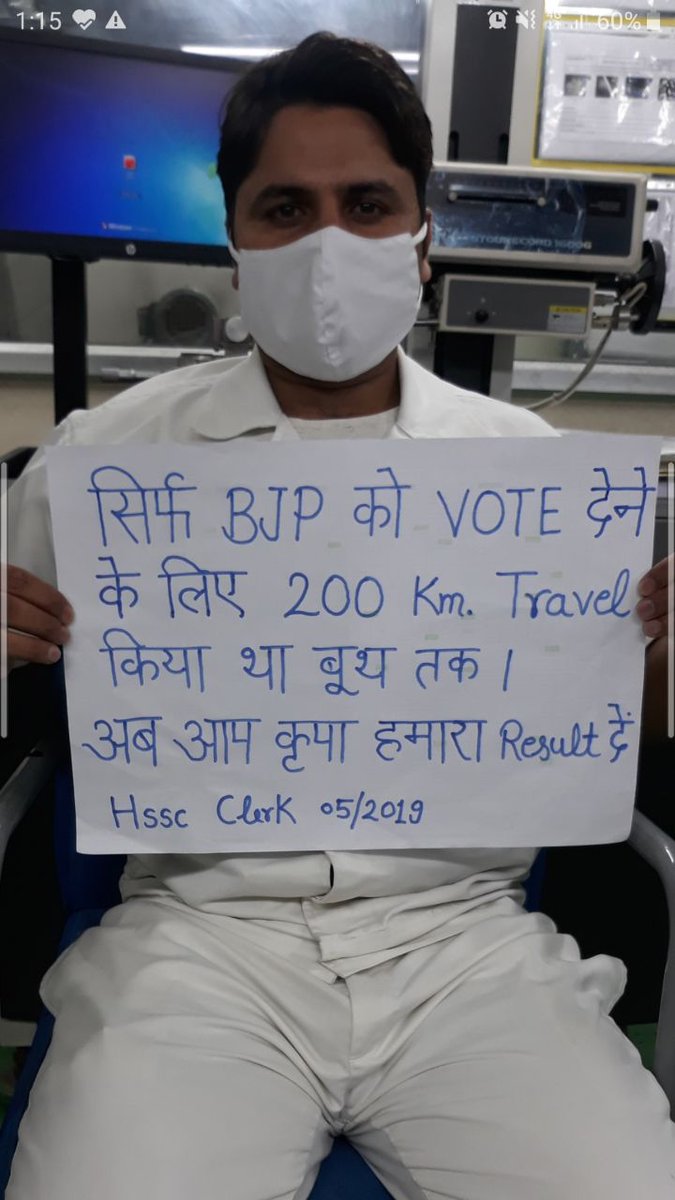 1:15
60%
सिर्फ BJP को VOTE देने
के लिए 200 Km. Travel
किया था बूथ तक।
अब आप कृपा हमारा Result दें
Hssc Clerk 05/2019
hp